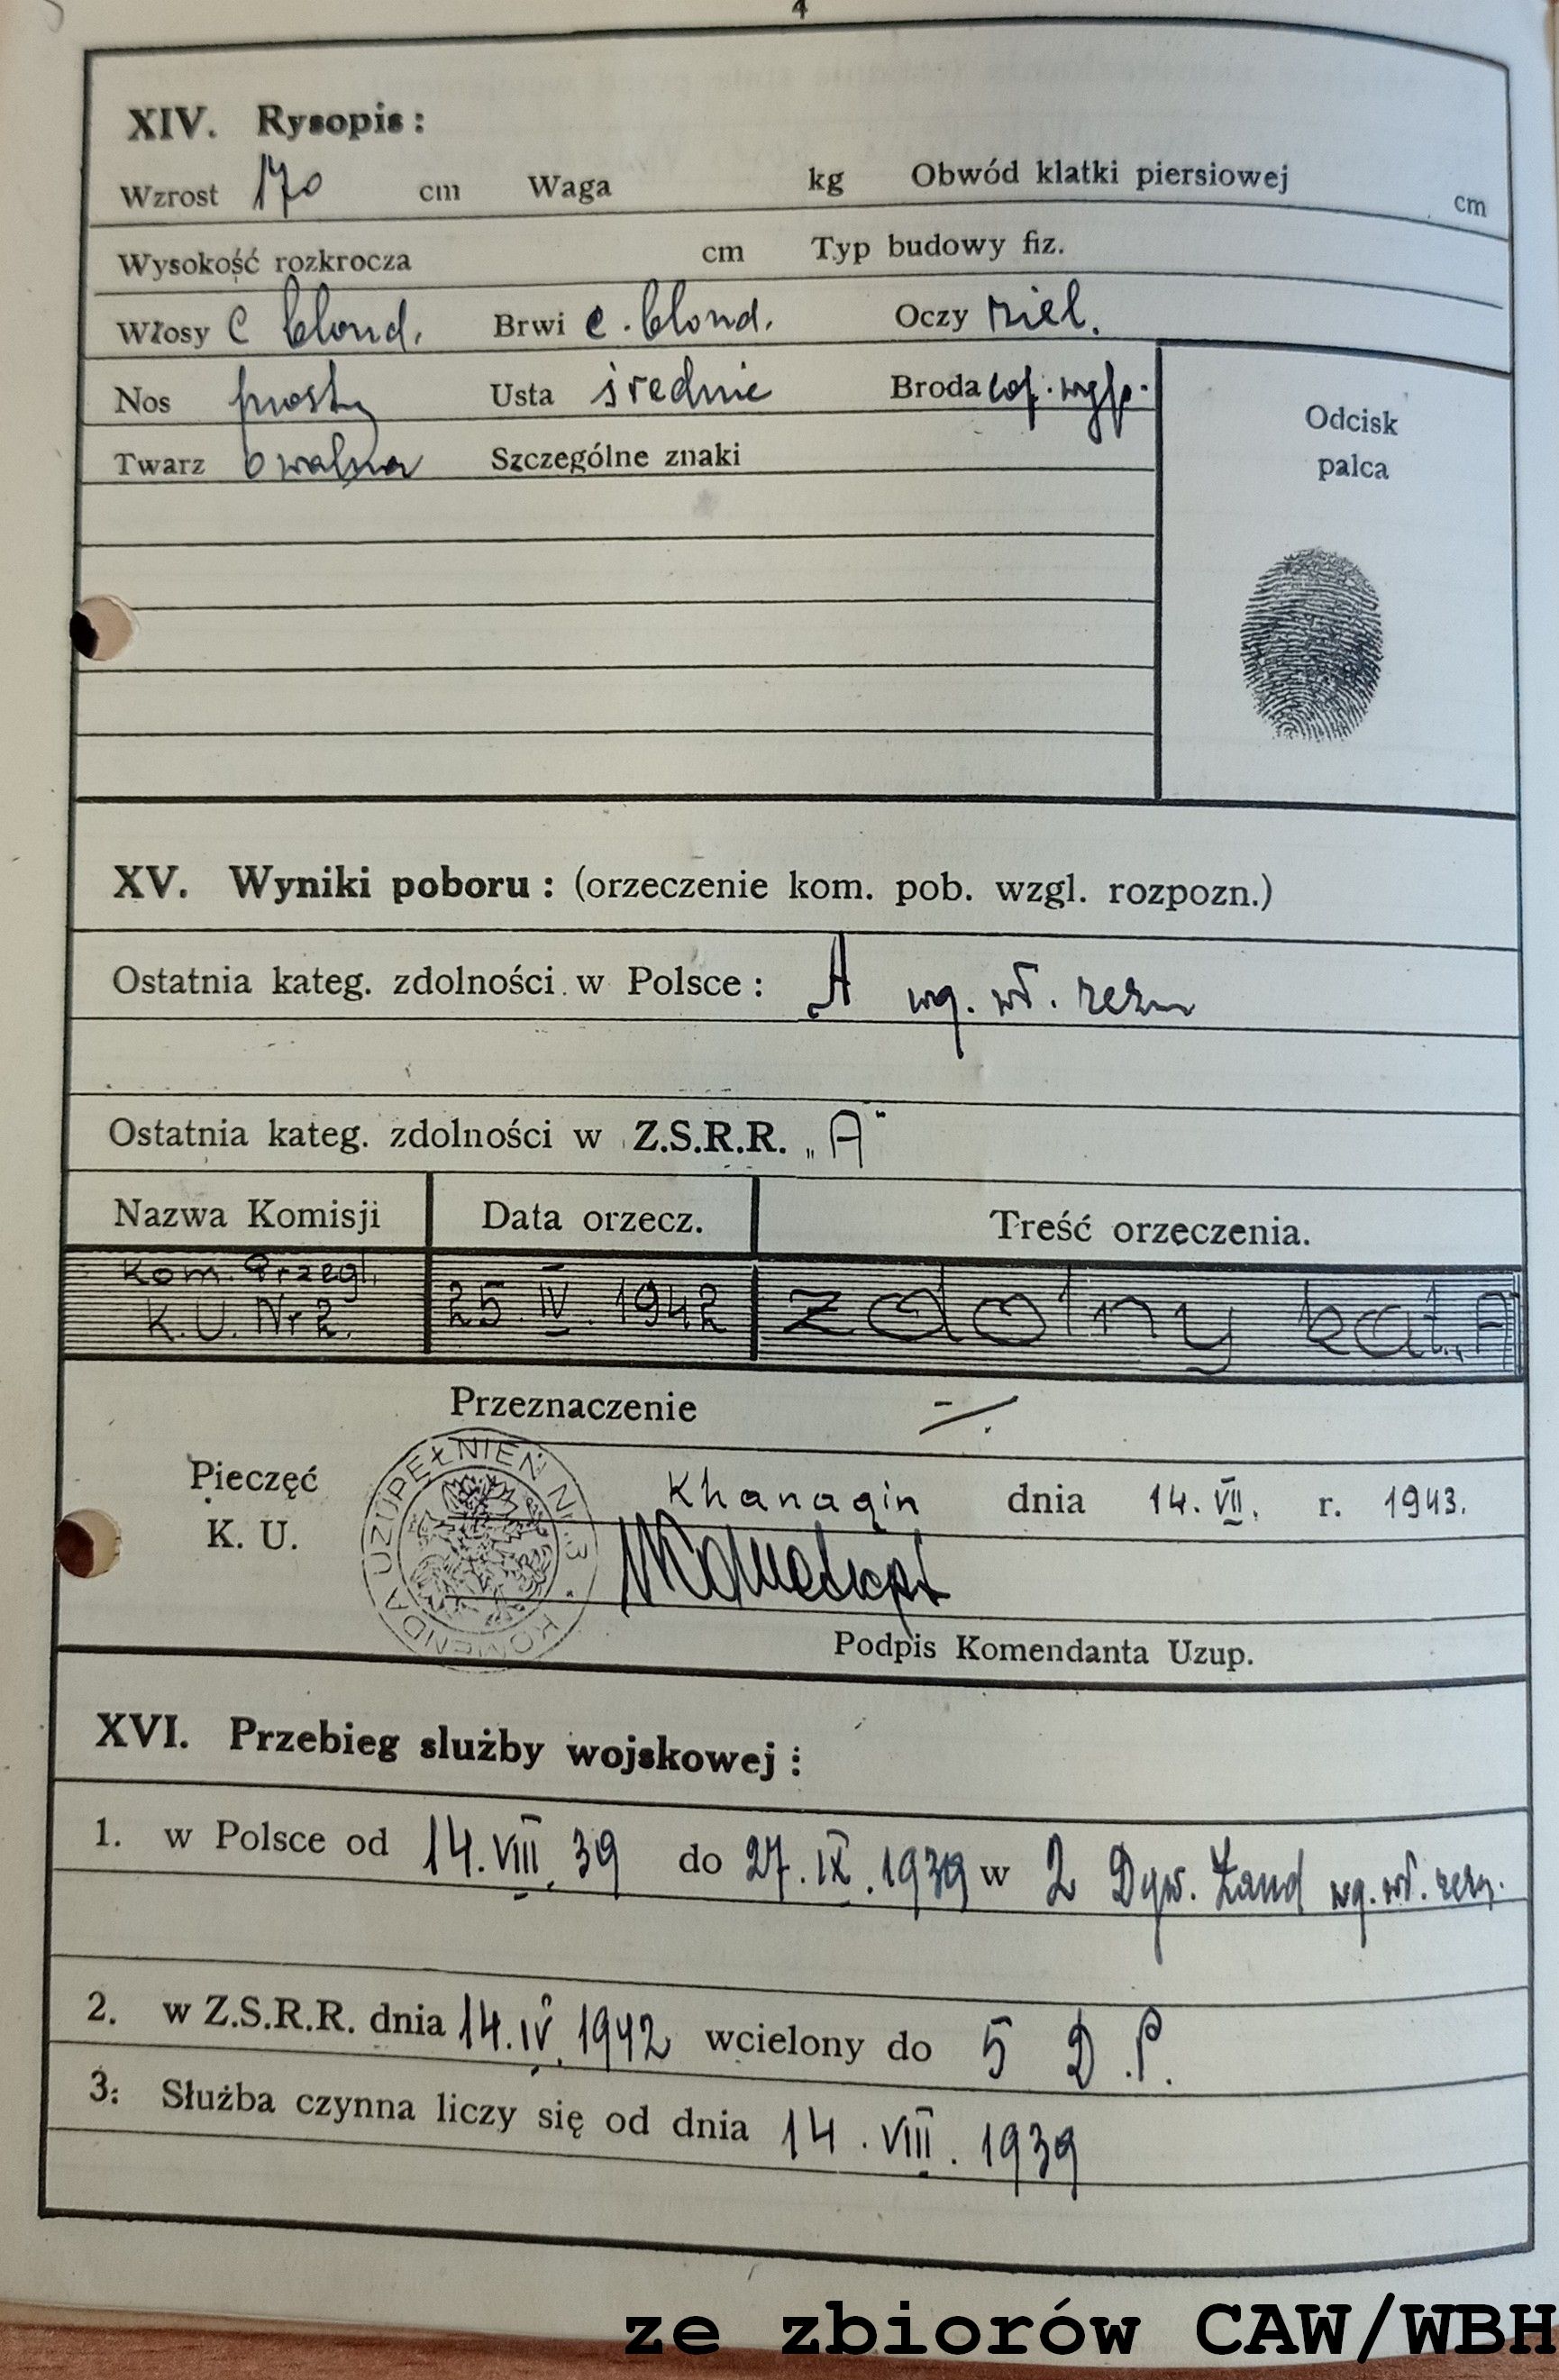 4
XIV. Rysopis:
Wzrost 170 cm Waga kg Obwód klatki piersiowej cm
Wysokość rozkrocza cm Typ budowy fiz.
Włosy C blond. Brwi c. blond. Oczy ziel.
Nos prosty Usta średnie Broda
Twarz owalna Szczególne znaki
Odcisk
palca
XV. Wyniki poboru: (orzeczenie kom. pob. wzgl. rozpozn.)
Ostatnia kateg. zdolności w Polsce: A wg. wł. zezn
Ostatnia kateg. zdolności w Z.S.R.R. „A"
Nazwa Komisji Data orzecz. Treść orzeczenia.
Kom. Przegl.
K.U. Nr 2. 25.IV.1942 zdolny kat. „A"
Przeznaczenie -/.
Pieczęć
K. U.
KOMENDA UZUPEŁNIEŃ Nr. 3
Khanaqin dnia 14.VII. r. 1943.
Podpis Komendanta Uzup.
XVI. Przebieg służby wojskowej:
1. w Polsce od 14.VIII.39 do 27.IX.1939 w 2 Dyw. Żand wg. wł. zezn.
2. w Z.S.R.R. dnia 14.IV.1942 wcielony do 5 D.P.
3. Służba czynna liczy się od dnia 14.VIII.1939
ze zbiorów CAW/WBH